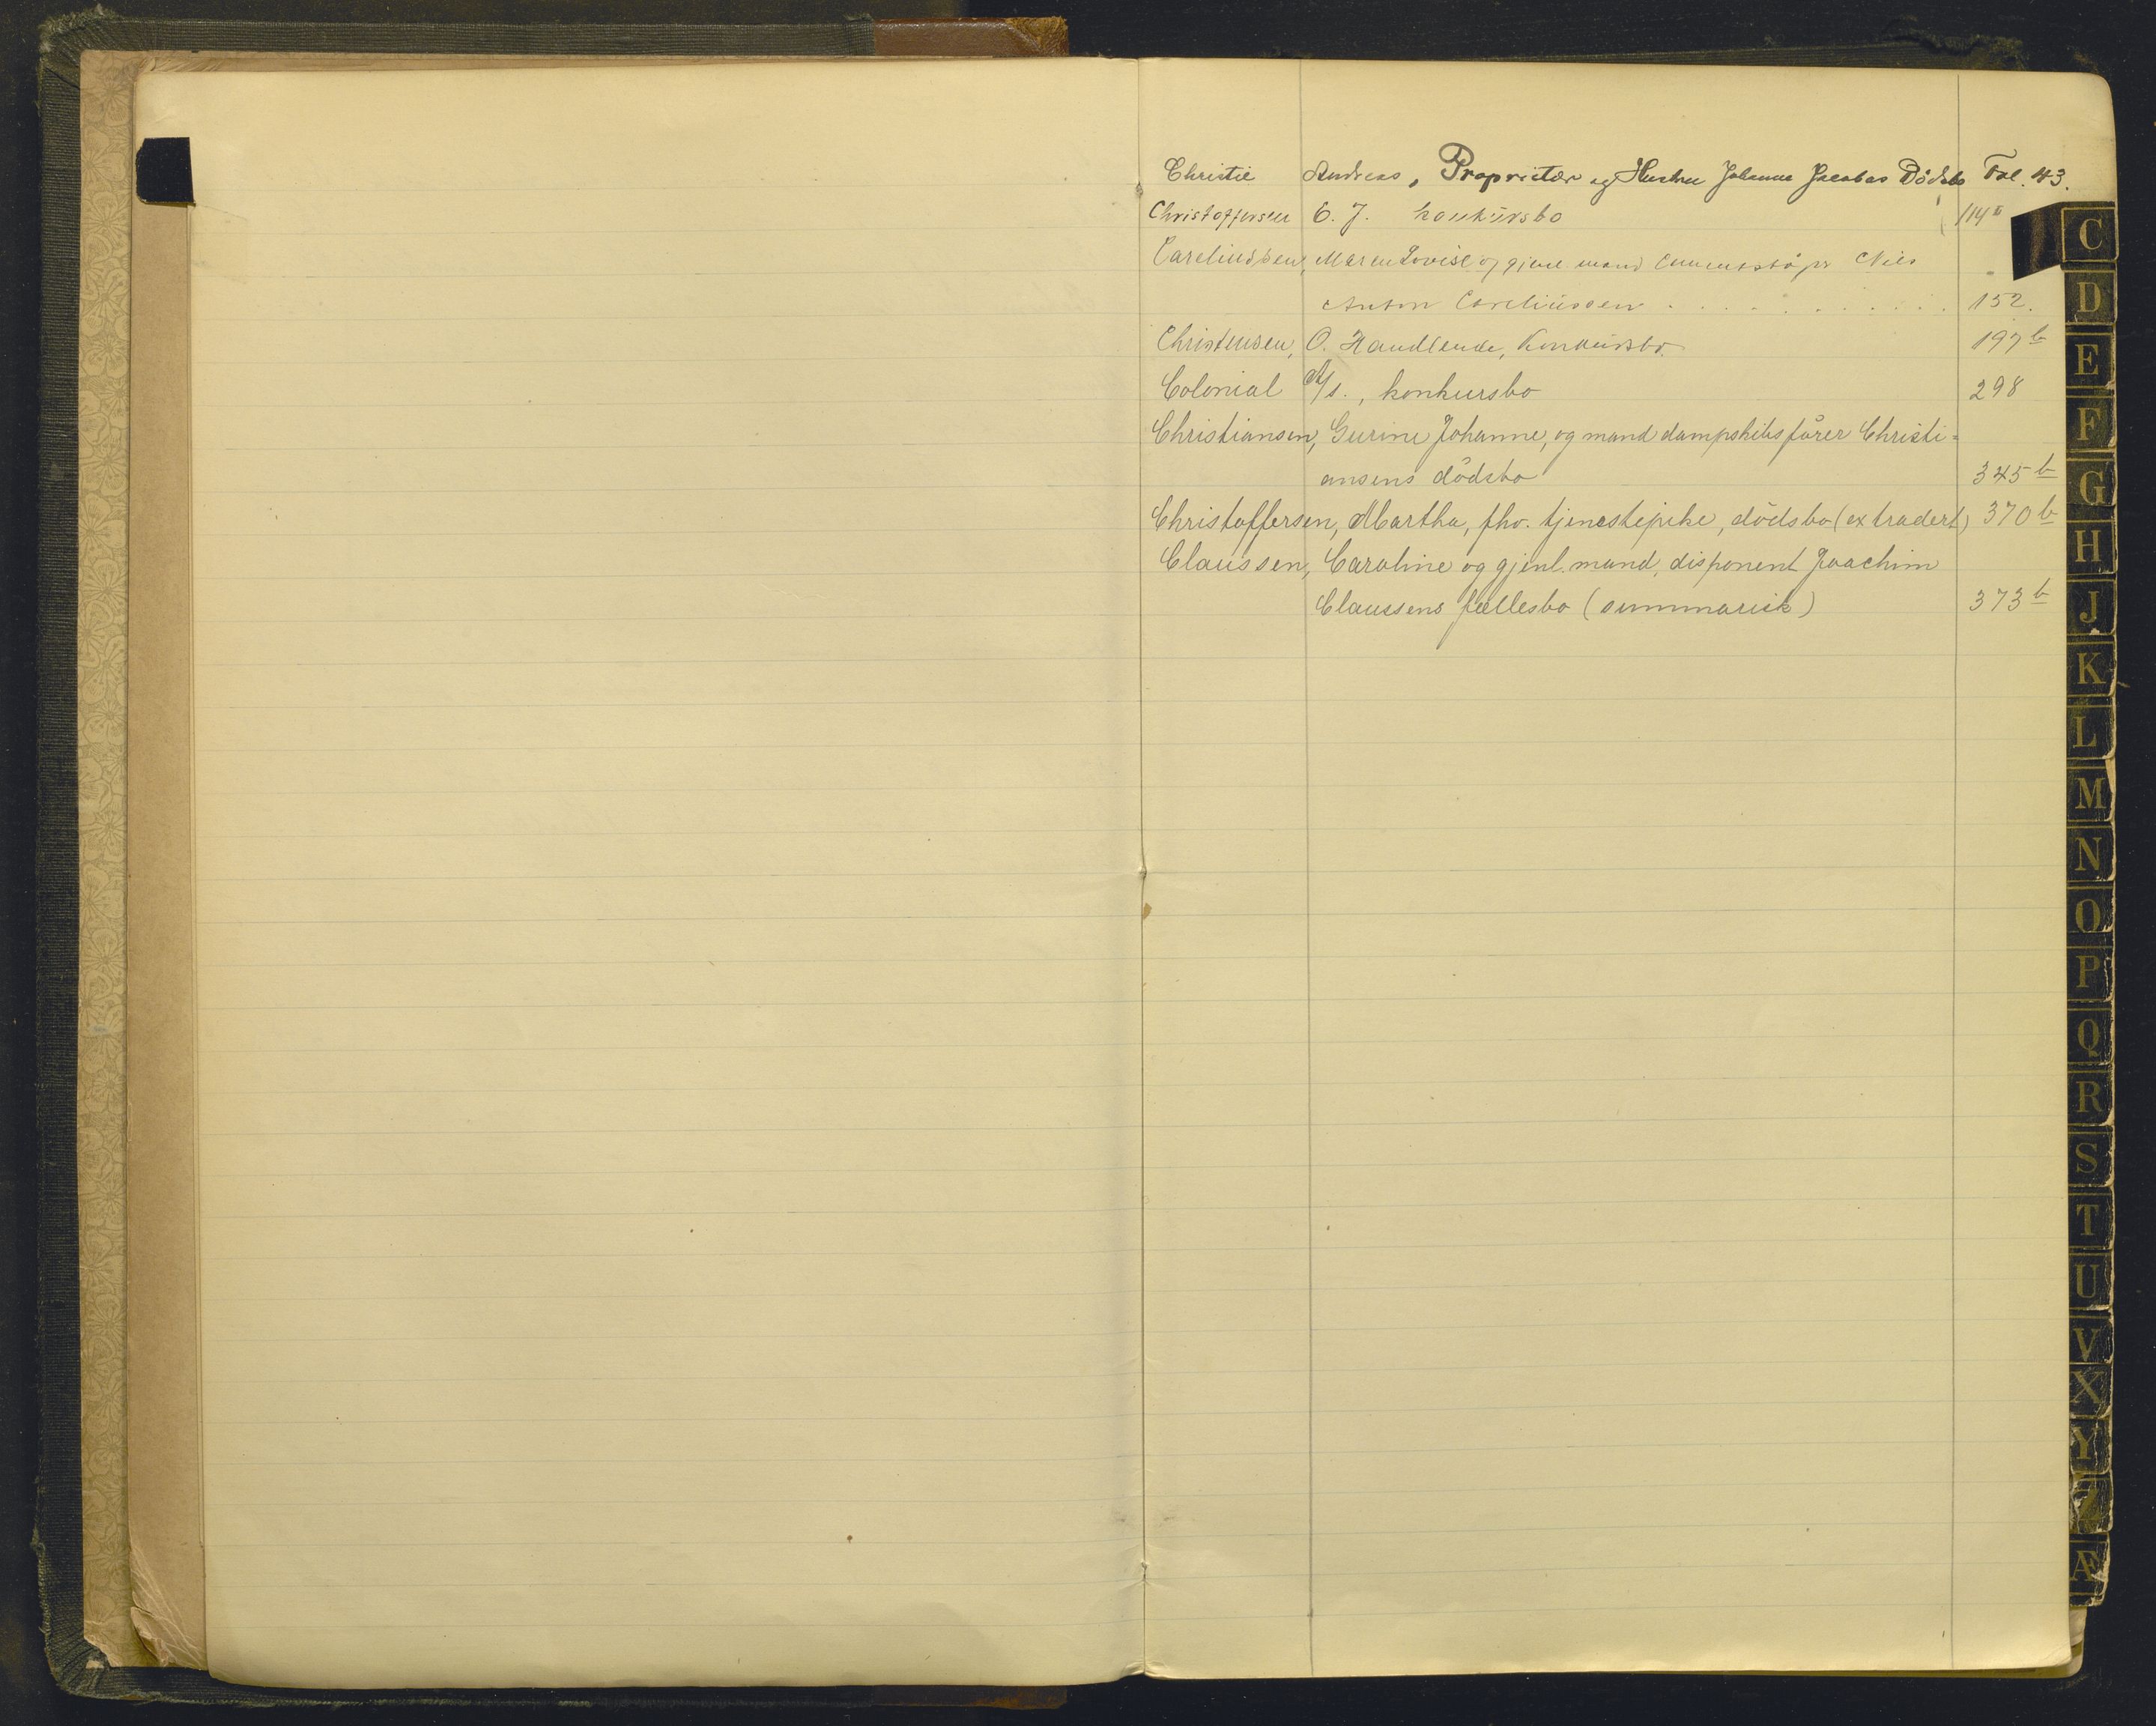 Christie Andreas, Proprietær og Hustru Johanne Jacobas Dödsbo Fol. 43.
Christoffersen C. J. konkürsbo 114
Careliussen, Maren Lovise og gjenl mand Nils
Anton Careliüssen . . . . . . . . . . . 152.
Christensen, O. Handlende, Konkürsbo. 197 b
Colonial A/s., konkursbo 298
Christiansen, Gurine Johanne, og mand dampskibsfører Christi=
ansens dödsbo 345 b
Christoffersen, Martha, fhv. tjenestepike, dödsbo (extradert) 370 b
Claussen, Caroline og gjenl. mand, disponent Joachim
Claussens fællesbo (summarisk) 373 b
C
D
E
F
G
H
J
K
L
M
N
O
P
Q
R
S
T
U
V
X
Y
Z
Æ